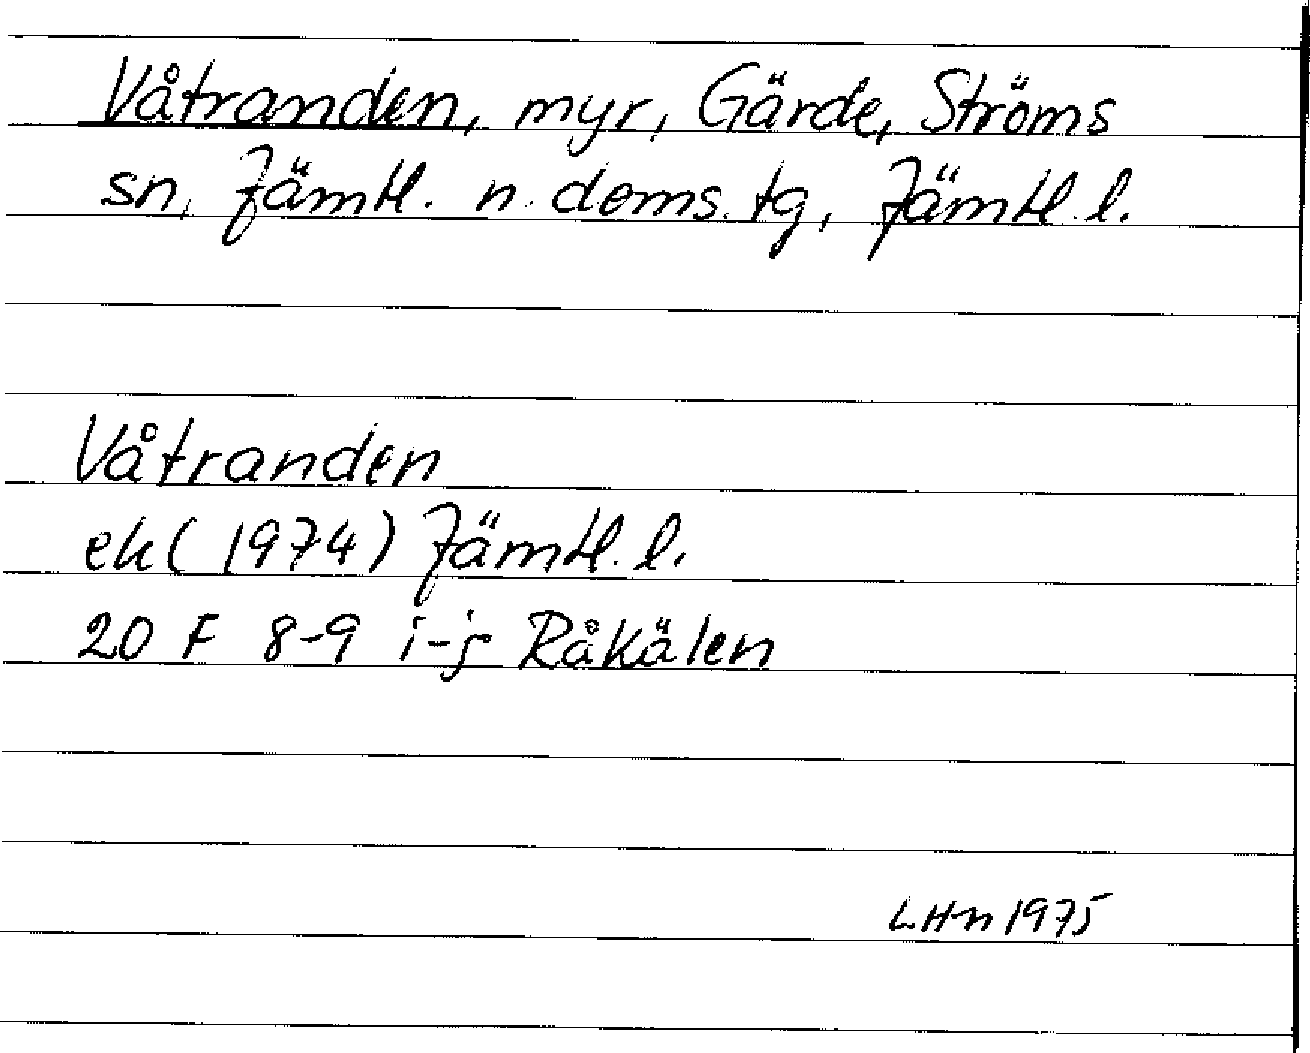 Våtranden, myr, Gärde, Ströms
sn, Jämtl. n. doms. tg, Jämtl. l.
Våtranden
ek (1974) Jämtl. l.
20 F 8-9 i-j Råkälen
LHn 1975